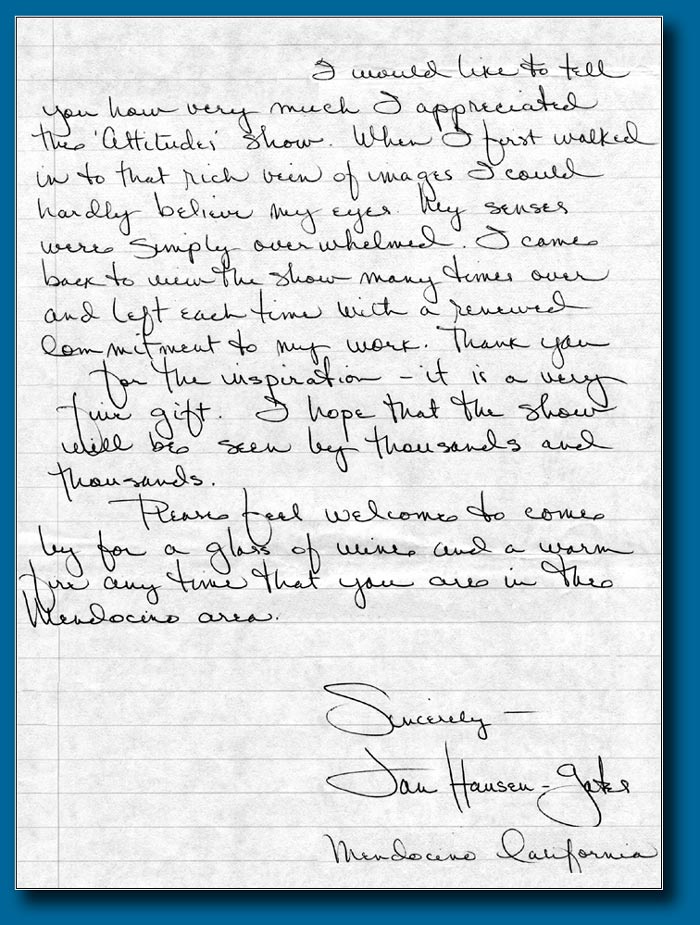 I would like to tell
you how very much I appreciated
the 'Attitudes' show. When I first walked
in to that rich vein of images I could
hardly believe my eyes. My senses
were simply overwhelmed. I came
back to view the show many times over
and left each time with a renewed
Commitment to my work. Thank you
for the inspiration - it is a very
fine gift. I hope that the show
will be seen by thousands and
thousands.
Please feel welcome to come
by for a glass of wine and a warm
fire any time that you are in the
Mendocino area.
Sincerely -
Jan Hansen-Gates
Mendocino California